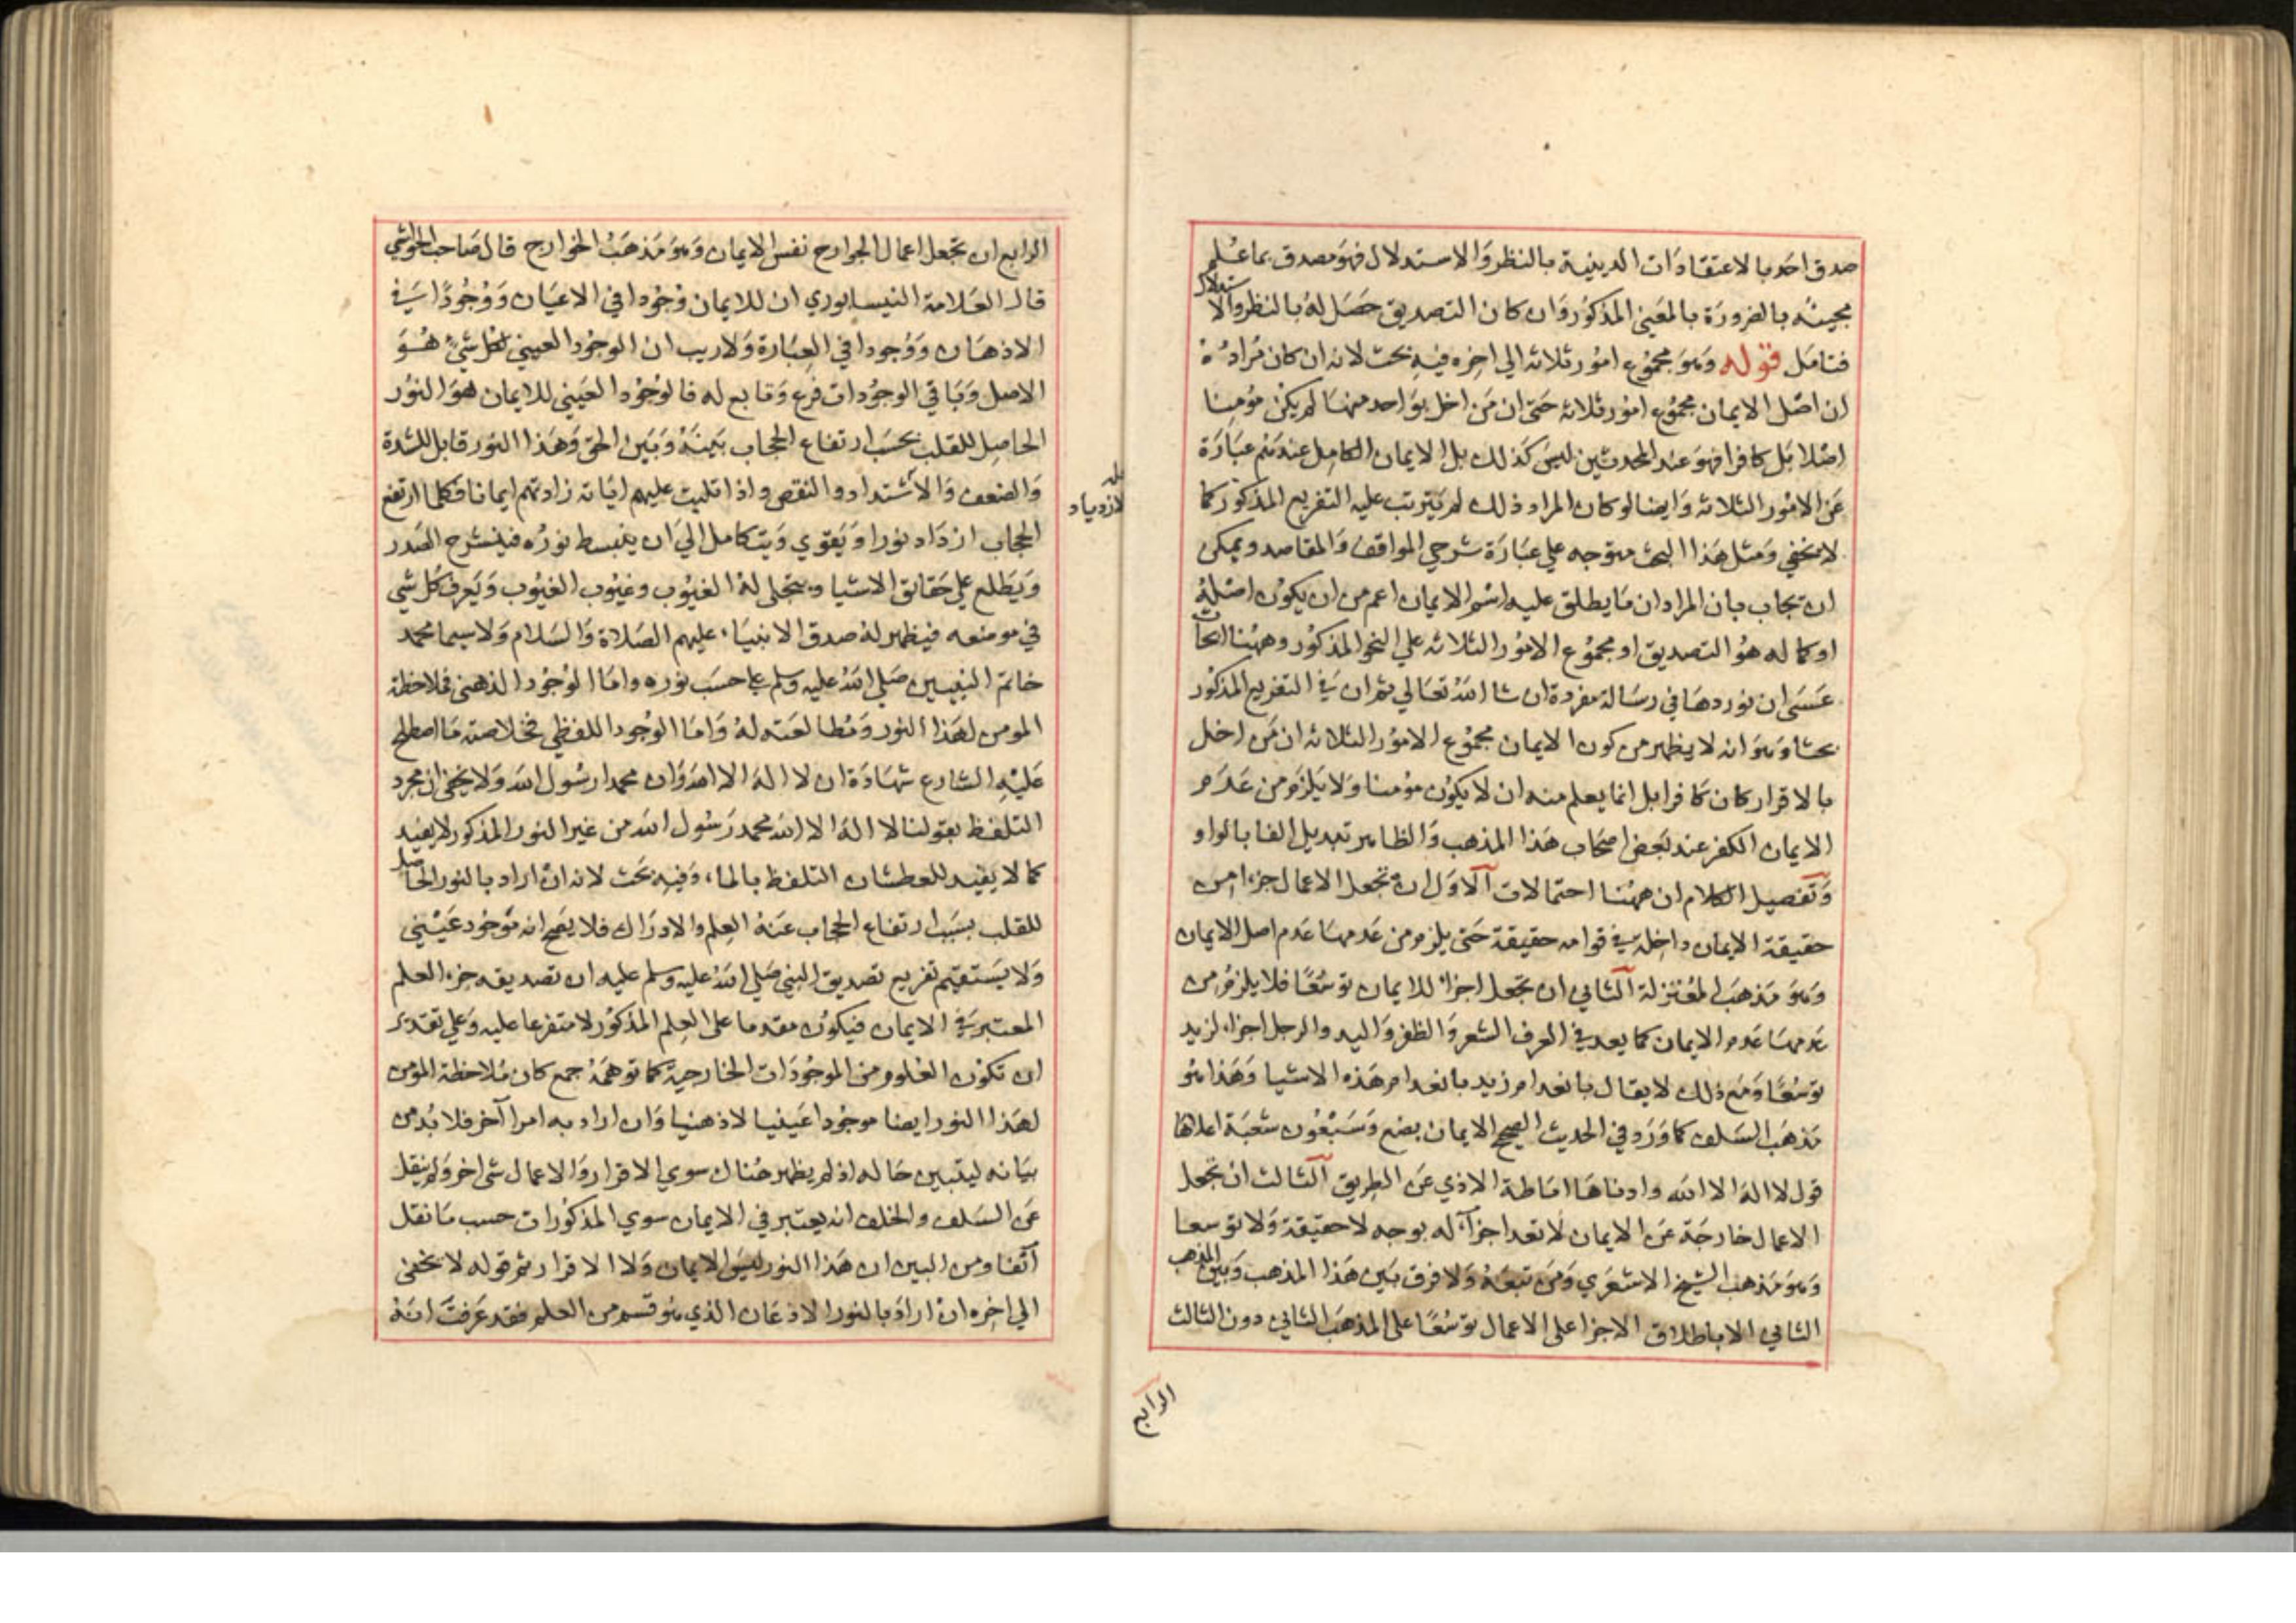 صدق احد بالاعتقادات الدينية بالنظر والاستدلال فهو مصدق بما علم
مجيئه بالضرورة بالمعنى المذكور وان كان التصديق حصل له بالنظر والاستدلال
فتامل قوله وهو مجموع امور ثلاثه الي اخره فيه بحث لانه ان كان مراده
ان اصل الايمان مجموع امور ثلاثه حتى ان من اخل بواحد منها لم يكن مؤمنا
اصلا بل كافرا فهو عند المحدثين ليس كذلك بل الايمان الكامل عندهم عبارة
عن الامور الثلاثه وايضا لو كان المراد ذلك لم يترتب عليه التفريع المذكور كما
لا يخفي ومثل هذا البحث متوجه علي عبارة شرحي المواقف والمقاصد ويمكن
ان يجاب بان المراد ان ما يطلق عليه اسم الايمان اعم من ان يكون اصله
او كماله هو التصديق او مجموع الامور الثلاثه علي النحو المذكور وههنا ابحاث
عسى ان نوردها في رسالة مفردة ان شا الله تعالي ثم ان في التفريع المذكور
بحثا وهو انه لا يظهر من كون الايمان مجموع الامور الثلاثه ان من اخل
بالاقرار كان كافرا بل انما يعلم منه ان لا يكون مؤمنا ولا يلزم من عدم
الايمان الكفر عند بعض اصحاب هذا المذهب والظاهر تبديل الفا بالواو
وتفصيل الكلام ان ههنا احتمالات الاول ان تجعل الاعمال جزءا من
حقيقة الايمان داخلة في قوامه حقيقة حتى يلزم من عدمها عدم اصل الايمان
وهو مذهب المعتزلة الثاني ان تجعل اجزا للايمان توسعا فلا يلزم من
عدمها عدم الايمان كما يعد في العرف الشعر والظفر واليد والرجل اجزاء لزيد
توسعا ومع ذلك لا يقال بانعدام زيد بانعدام هذه الاشيا وهذا هو
مذهب السلف كما ورد في الحديث الصحيح الايمان بضع وسبعون شعبة اعلاها
قول لا اله الا الله وادناها اماطة الاذي عن الطريق الثالث ان تجعل
الاعمال خارجة عن الايمان لا تعد اجزآء له بوجه لا حقيقة ولا توسعا
وهو مذهب الشيخ الاشعري ومن تبعه ولا فرق بين هذا المذهب وبين المذهب
الثاني الا باطلاق الاجزا على الاعمال توسعا على المذهب الثاني دون الثالث
الرابع
الرابع ان تجعل اعمال الجوارح نفس الايمان وهو مذهب الخوارج قال صاحب الحواشي
قال العلامة النيسابوري ان للايمان وجودا في الاعيان ووجودا في
الاذهان ووجودا في العبارة ولا ريب ان الوجود العيني لكل شئ هو
الاصل وباقي الوجودات فرع وتابع له فالوجود العيني للايمان هو النور
الحاصل للقلب بحسب ارتفاع الحجاب بينه وبين الحق وهذا النور قابل للشدة
والضعف والاشتداد والنقص واذا تليت عليهم اياته زادتهم ايمانا فكلما ارتفع
لازدياد
الحجاب ازداد نورا ويقوي ويتكامل الي ان ينبسط نوره فينشرح الصدر
ويطلع على حقائق الاشيا ويتجلى له الغيوب وغيوب الغيوب ويعرف كل شي
في موضعه فيظهر له صدق الانبياء عليهم الصلاة والسلام ولا سيما محمد
خاتم النبيين صلي الله عليه وسلم على حسب نوره واما الوجود الذهني فملاحظة
المومن لهذا النور ومطالعته له واما الوجود اللفظي فخلاصته ما اصطلح
عليه الشارع شهادة ان لا اله الا الله وان محمدا رسول الله ولا يخفي ان مجرد
التلفظ بقولنا لا اله الا الله محمد رسول الله من غير النور المذكور لا يفيد
كما لا يفيد للعطشان التلفظ بالماء وفيه بحث لانه ان اراد بالنور الحاصل
للقلب بسبب ارتفاع الحجاب عنه العلم والادراك فلا يصح انه موجود عيني
ولا يستقيم تفريع تصديق النبي صلي الله عليه وسلم عليه ان تصديقه جزء العلم
المعتبر في الايمان فيكون مقدما على العلم المذكور لا متفرعا عليه وعلي تقدير
ان تكون العلوم من الموجودات الخارجية كما توهمه جمع كان ملاحظة المؤمن
لهذا النور ايضا موجودا عينيا لا ذهنيا وان اراد به امرا آخر فلا بد من
بيانه ليتبين حاله اذ لم يظهر هناك سوي الاقرار والاعمال شى اخر ولم ينقل
عن السلف والخلف انه يعتبر في الايمان سوي المذكورات حسب ما نقل
آنفا ومن البين ان هذا النور ليس الايمان ولا الاقرار ثم قوله لا يخفى
الي اخره ان اراد بالنور الاذعان الذي هو قسم من العلم فقد عرفت انه